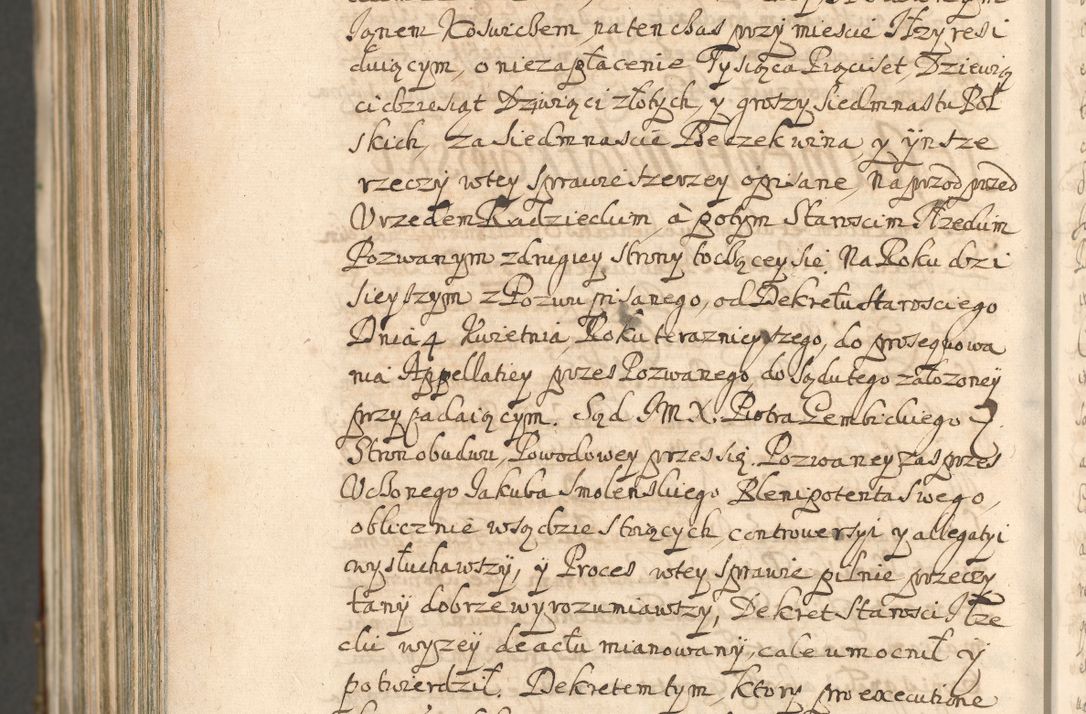 Janem Koświchem, na ten chas przy mieście Iłzy resi
duiącym, o niezapłacenie Tysiąca Pięciset, Dziewię
cidziesiąt Dziwięci złotych, y groszy siedmnastu Pol
skich, za Siedmnascie Beczek wina y ÿnsze
rzeczÿ wtey sprawie szerzey opisane, Na przod przed
Vrzędem Radzieckim, à potym Staroscim Iłzeckim
Pozwanym z drugiey strony toczącey się. Na Roku dzi
sieyszym z Pozwu pisanego, od Dekretu Starosciego
Dnia 4 Kwietnia, Roku teraznieyszego, do prosequowa
nia Appellatiey przes Pozwanego, do Sądu tego założoneÿ
przypadaiącym. Sąd J M X. Piotra Gembickiego
Stron obudwu, Powodowey przes się. Pozwaney zas przes
Vczonego Jakuba Smoleńskiego Plenipotenta Swego,
oblicznie w sądzie stoiących, controwersyi y allegatyi
wysłuchawszÿ, ÿ Proces wtey sprawie pilnie przeczy
tanÿ dobrze wyrozumiawszy, Dekret Starosci Iłze
cki wyzeÿ de actu mianowanÿ, cale umocnił ÿ
potwierdził. Dekretem tym, ktory pro executione